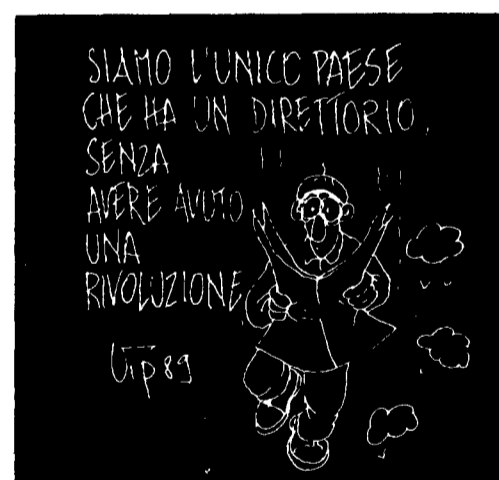 SIAMO L'UNICO PAESE
CHE HA UN DIRETTORIO,
SENZA
AVERE AVUTO
UNA
RIVOLUZIONE
Vip 89